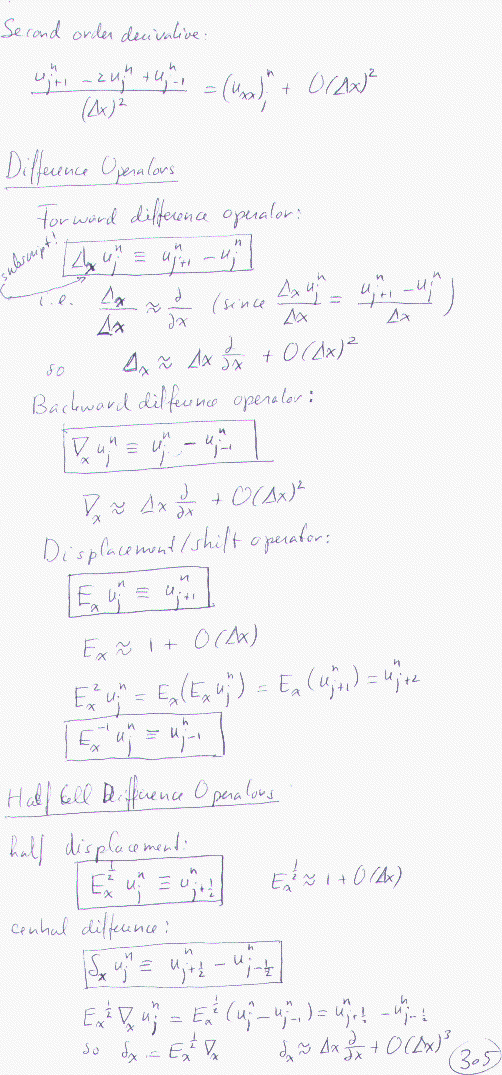 Second order derivative:
(u^n_{j+1} - 2u^n_j + u^n_{j-1}) / (Δx)^2 = (u_xx)^n_j + O(Δx)^2
Difference Operators
Forward difference operator:
subscript!
Δ_x u^n_j ≡ u^n_{j+1} - u^n_j
i.e. Δ_x/Δx ≈ ∂/∂x (since Δ_x u^n_j / Δx = (u^n_{j+1} - u^n_j) / Δx)
so Δ_x ≈ Δx ∂/∂x + O(Δx)^2
Backward difference operator:
∇_x u^n_j ≡ u^n_j - u^n_{j-1}
∇_x ≈ Δx ∂/∂x + O(Δx)^2
Displacement/shift operator:
E_x u^n_j ≡ u^n_{j+1}
E_x ≈ 1 + O(Δx)
E_x^2 u^n_j = E_x(E_x u^n_j) = E_x(u^n_{j+1}) = u^n_{j+2}
E_x^{-1} u^n_j ≡ u^n_{j-1}
Half Cell Difference Operators
half displacement:
E_x^{1/2} u^n_j ≡ u^n_{j+1/2} E_x^{1/2} ≈ 1 + O(Δx)
central difference:
δ_x u^n_j ≡ u^n_{j+1/2} - u^n_{j-1/2}
E_x^{1/2} ∇_x u^n_j = E_x^{1/2} (u^n_j - u^n_{j-1}) = u^n_{j+1/2} - u^n_{j-1/2}
so δ_x = E_x^{1/2} ∇_x δ_x ≈ Δx ∂/∂x + O(Δx)^3
3.5